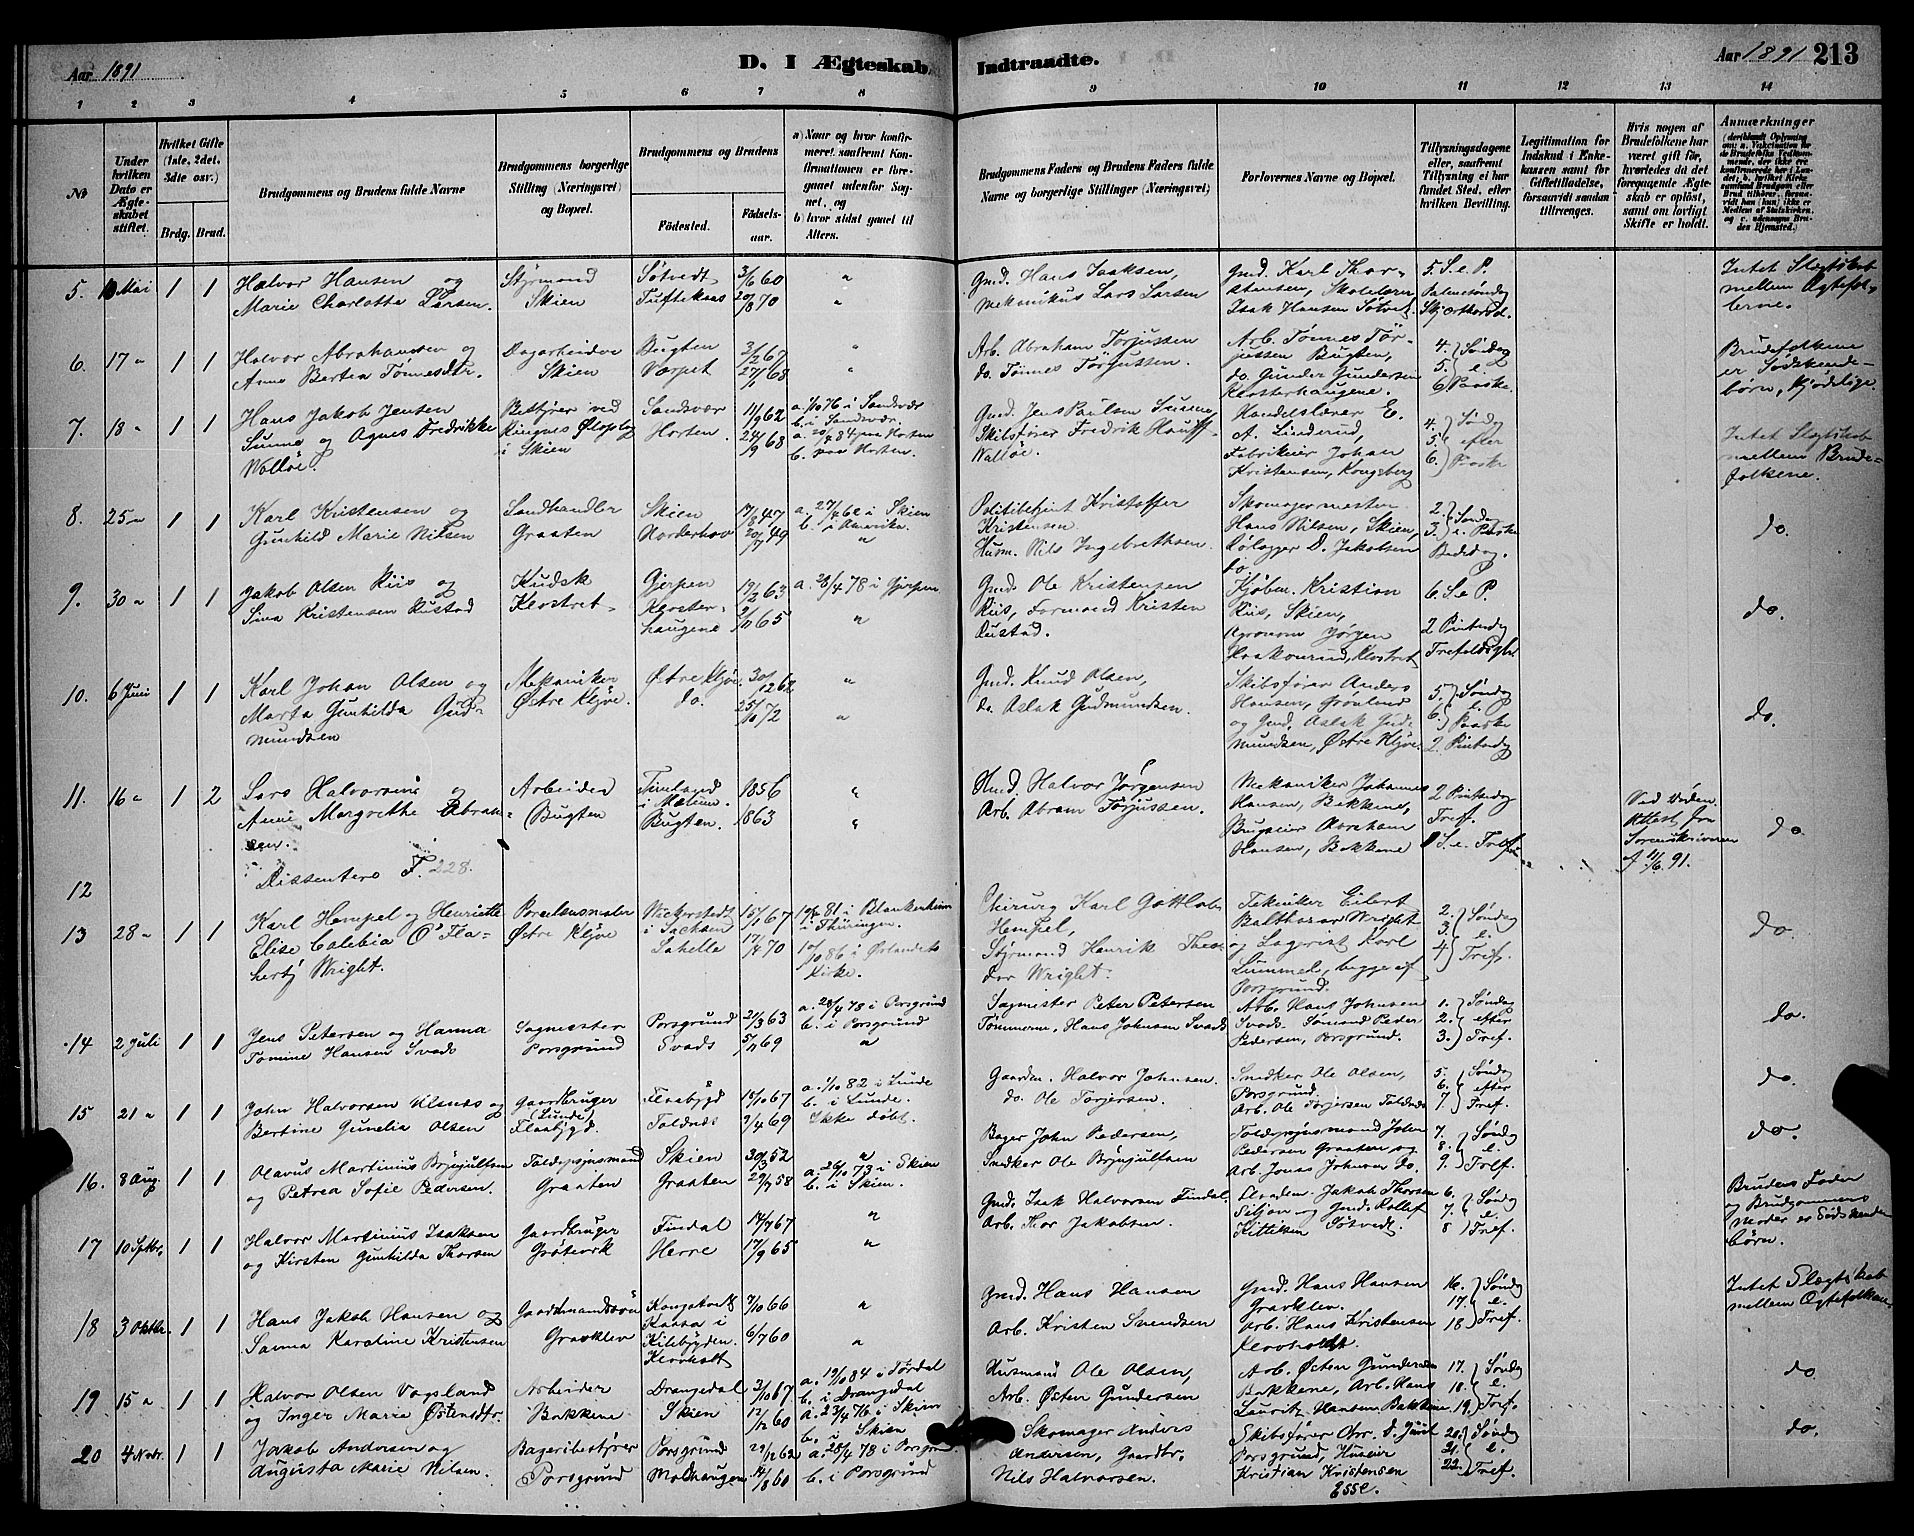 Aar 1891
D. I Ægteskab
Indtraadte.
Aar 1891 213
1 2 3 4 5 6 7 8
9 10 11 12 13 14
No
Under hvilken Dato er Ægteskabet stiftet.
Hvilket Gifte (1ste, 2det, 3die osv.)
Brdg. Brud.
Brudgommens og Brudens fulde Navne
Brudgommens borgerlige Stilling (Næringsvei) og Bopæl.
Brudgommens og Brudens
Fødested.
Fødselsaar.
a) Naar og hvor konfirmeret, saafremt Konfirmationen er foregaaet udenfor Sognet, og
b) hvor sidst gaaet til Alters.
Brudgommens Faders og Brudens Faders fulde Navne og borgerlige Stillinger (Næringsvei)
Forlovernes Navne og Bopæl.
Tillysningsdagene eller, saafremt Tillysning ei har fundet Sted, efter hvilken Bevilling.
Legitimation for Indskud i Enkekassen samt for Giftetilladelse, forsaavidt saadan tiltrænges.
Hvis nogen af Brudefolkene har været gift før, hvorledes da det foregaaende Ægteskab er opløst, samt om lovligt Skifte er holdt.
Anmærkninger
5. 10 Mai 1 1 Halvor Hansen og
Marie Charlotte Larsen.
Styrmand
Skien
Søtvedt 3/6 60 "
Tufteknas 20/8 70 "
Gmd. Hans Isaksen,
Mekanikus Lars Larsen
Gmd. Karl Thorstensen, Skolelærer
Isak Hansen Søtvet.
5. S. e. P.
Palmesøndag
Skjærthorsd.
Intet Slegtskab
mellem Ægtefolkene.
6. 17 " 1 1 Halvor Abrahamsen og
Anne Berten Tønnesdtr.
Dagarbeider
Skien
Bugten 3/2 67 "
Værpet 27/1 68 "
Arb. Abraham Torjussen
do. Tønnes Torjussen.
Arb. Tønnes Torjussen Bugten,
do. Gunder Gundersen
Klosterhaugene.
4. Søndag
5. e.
6 Paaske.
Brudefolkene
er Sødskendebørn, kjødelige.
7. 18 " 1 1 Hans Jakob Jensen
Sunne og Agnes Fredrikke
Walløe.
Bestyrer ved
Ringnes Ølopslag
i Skien
Sandsvær 11/9 62
Horten. 24/9 68
a. 1/10 76 i Sandsvær
b. i Sandsvær.
a. 20/4 84 paa Horten
b. paa Horten.
Gmd. Jens Paulsen Sunne,
Skibsfører Fredrik Hauff
Walløe.
Handelslærer E.
A. Linderud,
Fabrikeier Johan
Kristensen, Kongsberg
4. Søndag
5. efter
6. Paaske
Intet Slegtskab
mellem Brudefolkene.
8. 25 " 1 1 Karl Kristensen og
Gunhild Marie Nilsen
Landhandler
Graaten
Skien 17/8 47
Norderhov 20/7 49
a. 27/4 62 i Skien
b. i Amerika.
"
Politibetjent Kristoffer
Kristensen.
Husm. Nils Ingebrethsen.
Skomagermester
Hans Nilsen, Skien,
Rørlægger D. Jakobsen
do.
2. Søndag
3. e. Paaske
Bededag.
do.
9. 30 " 1 1 Jakob Olsen Riis og
Sina Kristensen Rustad
Kudsk
Klostret
Gjerpen 19/2 63
Klosterhaugene 9/11 65
a. 28/4 78 i Gjerpen
"
Gmd. Ole Kristensen
Riis, Formand Kristen
Rustad.
Kjøbm. Kristian
Riis, Skien,
Agronom Jørgen
Haakonrud, Klostret
6. S. e. P.
2 Pintsedag
Trefoldighed
do.
10. 6 Juni 1 1 Karl Johan Olsen og
Marta Gunhilda Gudmundsen
Mekaniker
Østre Kljve.
Østre Kljve. 30/12 62 "
do. 25/10 72 "
Gmd. Knud Olsen,
do. Aslak Gudmundsen.
Skibsfører Anders
Hansen, Grønland
og Gmd. Aslak Gudmundsen, Østre Kljve.
5. Søndag
6. e. Paaske
2. Pintsedag
do.
11. 16 " 1 2 Lars Halvorsen og
Anne Margrethe Abrahamsen.
Arbeider
Bugten
i Mælum. 1856 "
Bugten. 1863 "
Hmd. Halvor Jørgensen
Arb. Abram Torjussen.
Mekaniker Johannes
Hansen, Bakkene,
Brugseier Abraham
Hansen, Bakkene
2 Pintsedag
Tref.
1 S. e. Tref.
Ved Døden.
Attest fra
Sorenskriveren
af 11/6 91.
do.
12 Dissentere F. 228.
13 28 " 1 1 Karl Hempel og Henriette
Elise Calebia O'Flaherty Wright.
Porcelænsmaler
Østre Kljve
Wickerstedt
i Sachsen 15/1 67
Lahelle 17/4 70
19/4 81 i Blankenhain
i Thüringen.
10/10 86 i Ørlandets
Kirke.
Chirurg Karl Gottlob
Hempel,
Styrmand Henrik Theodor Wright.
Tekniker Eilert
Balthasar Wright
og Lagerist Karl
Lummel, begge af
Porsgrund.
2. Søndag
3. e.
4. Tref.
do
14 2 Juli 1 1 Jens Petersen og Hanna
Tomine Hansen Svads
Sagmester
Porsgrund
Porsgrund 21/3 63
Svads 5/11 69
a. 28/4 78 i Porsgrund
b. i Porsgrund
"
Sagmester Peter Petersen
Tømmerm. Hans Johnsen Svads
Arb. Hans Johnsen
Svads. Sømand Peder
Pedersen, Porsgrund.
1. Søndag
2. efter
3. Tref.
do.
15 21 " 1 1 John Halvorsen Ulsnes og
Bertine Gunelia Olsen
Gaardbruger
(Lunde)
Flaabygd.
Flaabygd 15/10 67
Toldnæs 2/4 69
a. 1/10 82 i Lunde
b. i Lunde.
Ikke døbt.
Gaardm. Halvor Johnsen.
do. Ole Torjersen.
Snedker Ole Olsen,
Porsgrund
Arb. Ole Torjersen Toldnæs
5. Søndag
6. efter
7. Tref.
do.
16. 8 Aug. 1 1 Olavus Martinius Brynjulfsen
og Petrea Sofie Pedersen.
Toldopsynsmand
Graaten
Skien 30/3 52
Graaten 29/7 58
"
a. 26/10 73 i Skien
b. i Skien.
Bager John Pedersen,
Snedker Ole Brynjulfsen
Toldopsynsmand John
Pedersen Graaten og
Arb. Jonas Johnsen do.
7. Søndag
8. e.
9. Tref.
do.
17 10 Septbr. 1 1 Halvor Martinius Isaksen
og Kirsten Gunhilda Thorsen
Gaardbruger
Grøtvedt
Findal 14/7 67 "
Herre 17/9 65 "
Gmd. Isak Halvorsen Findal
Arb. Thor Jakobsen.
Jakob Thorsen
Siljan og Gmd. Rollef
Kittilsen Søtvedt.
6. Søndag
7. e.
8 Tref.
Brudens Fader
og Brudgommens
Moder er Sødskendebørn.
18 3 Oktbr. 1 1 Hans Jakob Hansen og
Sanna Karoline Kristensen
Gaardmandssøn
Gravklev
Kaasa i
Kilebygden. 7/10 66 "
Klovholt 6/7 60 "
Gmd. Hans Hansen
Arb. Kristen Svendsen
Gmd. Hans Hansen
Gravklev.
Arb. Hans Kristensen
Klovholdt.
16. Søndag
17. e.
18 Tref.
Intet Slegtskab
mellem Ægtefolkene
19 15 " 1 1 Halvor Olsen Vogsland
og Inger Marie Østensdtr.
Arbeider
Bakkene
Drangedal 3/10 67
Skien 12/12 60
a. 19/10 84 i Tørdal
b. i Drangedal
a. 23/4 76 i Skien
b. i Skien
Husmand Ole Olsen,
Arb. Østen Gundersen
Arb. Østen Gundersen
Bakkene, Arb. Hans
Lauritz Hansen Bakkene
17. Søndag
18. e.
19. Tref.
do
20 4 Novbr. 1 1 Jakob Andersen og
Augusta Marie Nilsen.
Bageribestyrer
Porsgrund
Porsgrund 29/12 62
Moldhaugen 14/8 60
a. 28/4 78 i Porsgrund
b. i Porsgrund
Skomager Anders
Andersen, Gaardbr.
Nils Halvorsen.
Skibsfører Chr. D. Juul
Porsgrund, Huseier
Kristian Kristensen
20. Søndag
21. e.
22. Tref.
do.